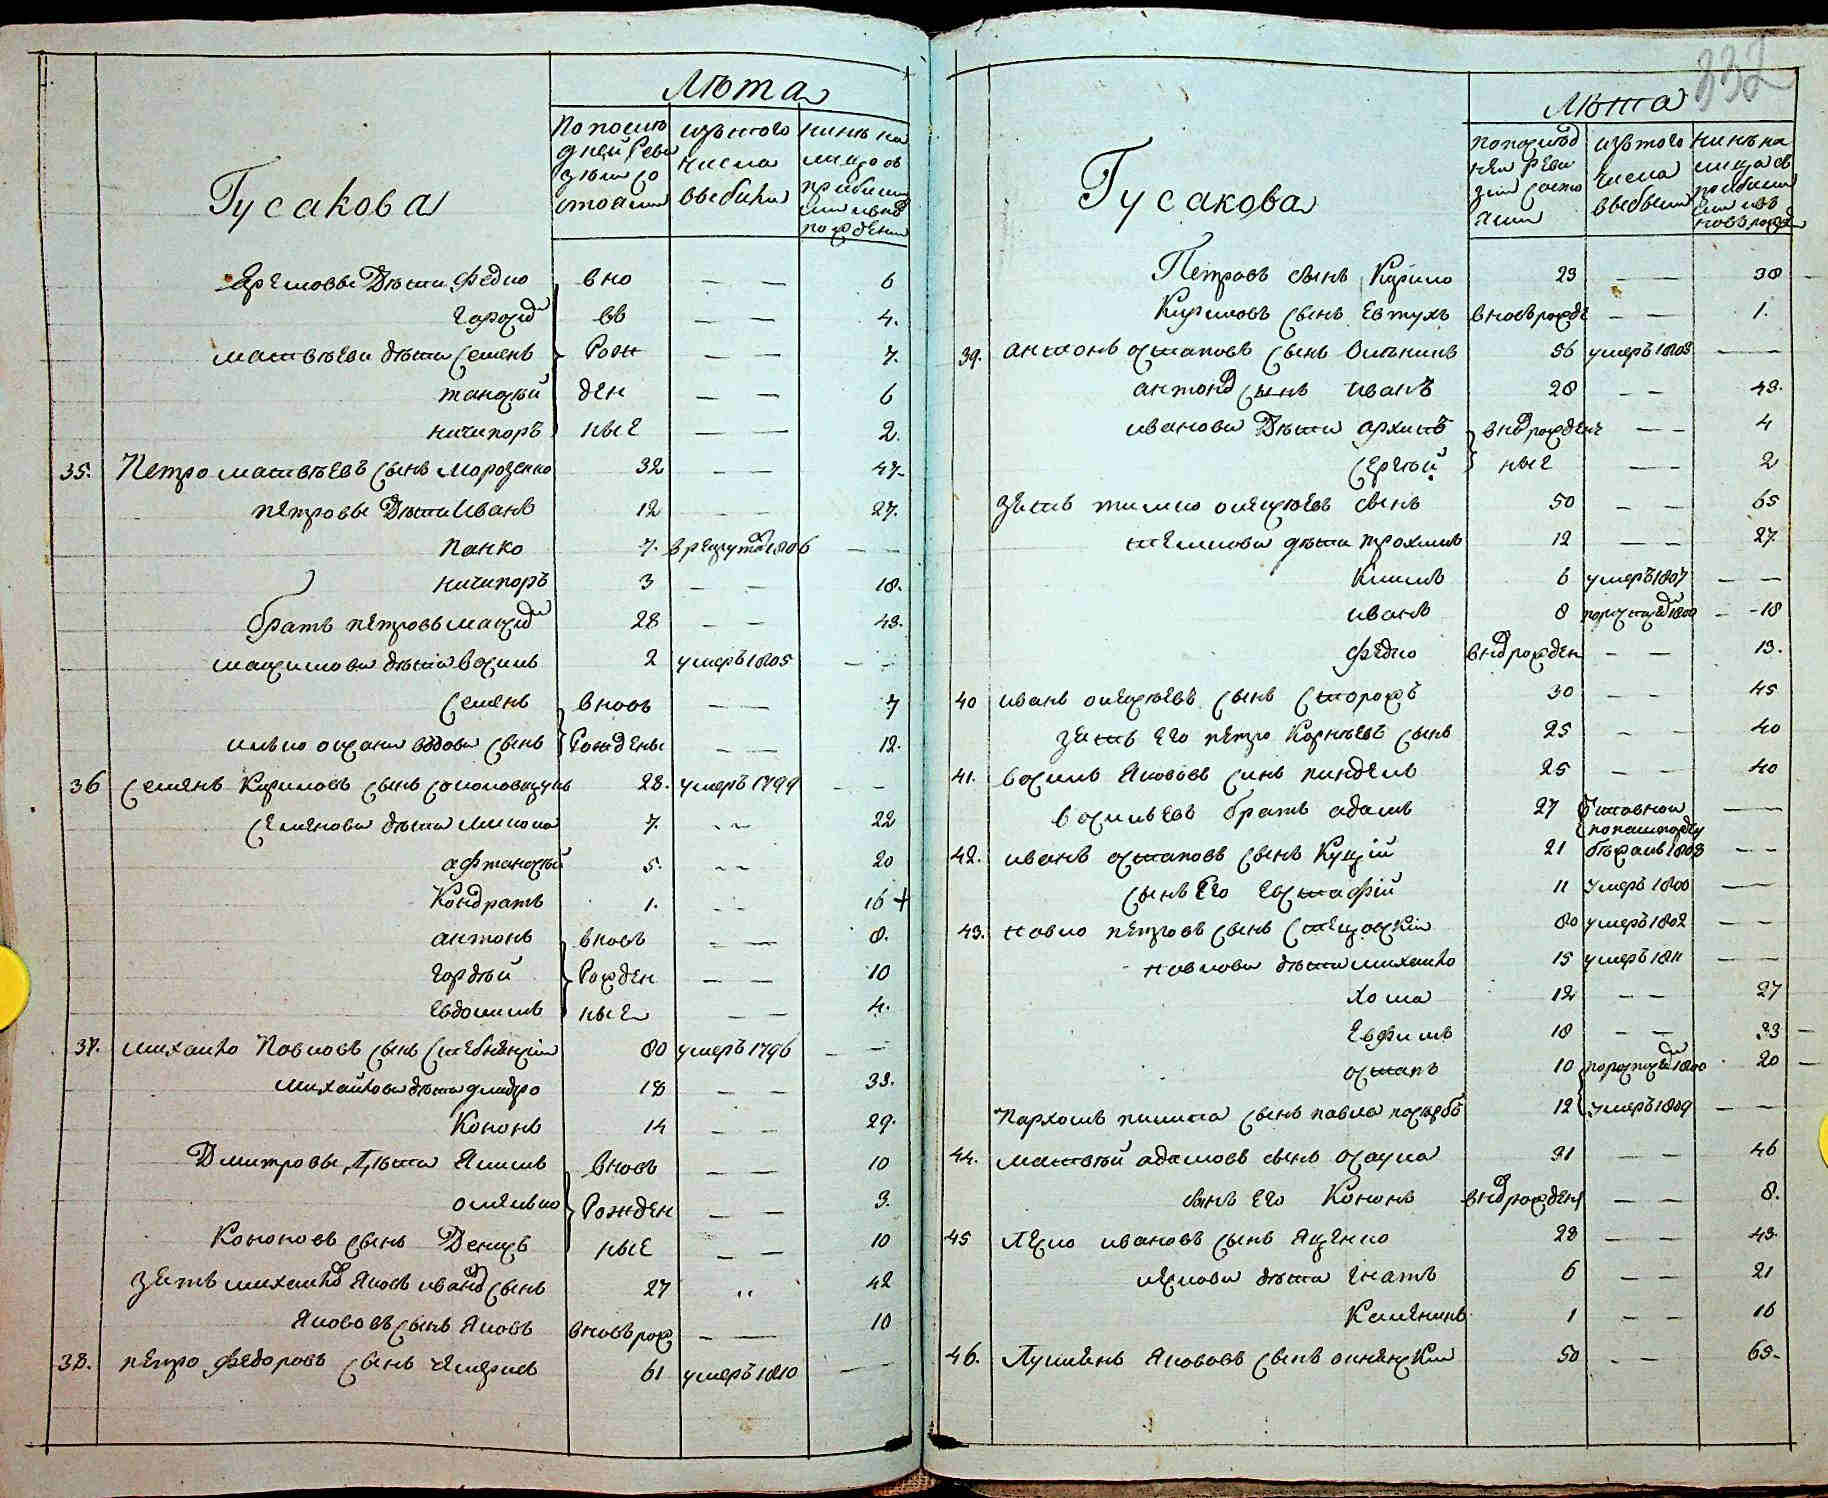 Лѣта
Гусакова
По послѣ
дней Реви
зіи со
стояли
изъ того
числа
выбыли
нынѣ на
лицо съ
прибыл
ими и новъ
рожден
Яремовы Дѣти Федко вно — — 6
Гараси вв — — 4.
Матвѣеви дѣти Семенъ Рож — — 7.
танасій ден — — 6
ничипоръ ные — — 2.
35. Петро матвѣевъ сынъ морозенко 32 — — 47
петровы Дѣти Иванъ 12 — — 27.
панко 7. в рекруты 1806 — —
ничипоръ 3 — — 18.
братъ петровъ максим 28 — — 43.
максимови дѣти василь 2 умеръ 1805 — —
семенъ вновь — — 7
вдови сынъ Рожденъ — — 12.
36 семенъ Кириловъ сынъ 28. умеръ 1799 — —
семенови дѣти микола 7. — — 22
афтанасій 5. — — 20
Кондратъ 1. — — 16 +
антонъ вновь — — 8.
гордѣй Рожден — — 10
евдокимъ ные — — 4.
37. михайло Павловъ сынъ 80 умеръ 1796 — —
михайлови дѣти дмитро 18 — — 33.
Кононъ 14 — — 29.
Дмитровы Дѣти Якимъ вновь — — 10
омелько Рожден — — 3.
Кононовъ сынъ Денисъ ные — — 10
зять михайлов Яковъ иванов сынъ 27 „ 42
Яковов сынъ Яковъ вновъ рож — — 10
38. петро федоровъ сынъ чемерисъ 61 умеръ 1810 —
332
Лѣта
Гусакова
по послѣд
ней реви
зіи состо
яли
изъ того
числа
выбыли
нынѣ на
лицо съ
прибыл
ими изъ
новъ рожд
Петровъ сынъ Кирило 23 — — 38
Кириловъ сынъ Евтухъ вновърожде — — 1.
39. антонъ остаповъ сынъ 56 умеръ 1808 —
антонов сынъ иванъ 28 — — 43.
иванови Дѣти архипъ вновъ рожден — — 4
сергѣй ные — — 2
зять тимко олексѣевъ сынъ 50 — — 65
тимкови дѣти трохимъ 12 — — 27
Климъ 6 умеръ 1807 — —
иванъ 8 1800 — 18
федко вновъ рожден — — 13.
40 иванъ олексѣевъ сынъ сторожъ 30 — — 45
зять его петро Корнѣевъ сынъ 25 — — 40
41. василь Яковов синъ пиндель 25 — — 40
васильевъ братъ адамъ 27 —
по пашпорту
42. иванъ остаповъ сынъ Куцій 21 бѣжалъ 1808 — —
сынъ Его Евстафій 11 умеръ 1800 —
43. павло петровъ сынъ 80 умеръ 1802 — —
павлови дѣти михайло 15 умеръ 1811 — —
хома 12 — — 27
Евфимъ 18 — — 33
остапъ 10 1800 20
Пархомъ пилипа сынъ павла 12 умеръ 1809 — —
44. матвѣй адамовъ сынъ осаула 31 — — 46
сынъ его Кононъ вновъ рожден — — 8.
45 леско ивановъ сынъ Яценко 28 — — 43.
лескови дѣти гнатъ 6 — — 21
Клименъ 1 — — 16
46. Яковов сынъ 50 — — 65.